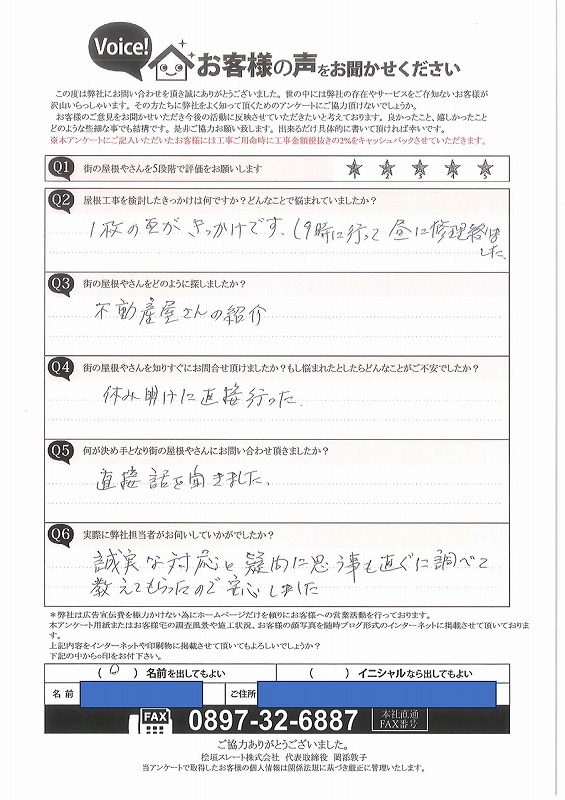 Voice!
お客様の声をお聞かせください
この度は弊社にお問い合わせを頂き誠にありがとうございました。世の中には弊社の存在やサービスをご存知ないお客様が
沢山いらっしゃいます。その方たちに弊社をよく知って頂くためのアンケートにご協力頂けないでしょうか。
お客様のご意見をお聞かせいただき今後の活動に反映させていただきたいと考えております。良かったこと、嬉しかったこと
どのような些細な事でも結構です。是非ご協力お願い致します。出来るだけ具体的に書いて頂ければ幸いです。
※本アンケートにご記入いただいたお客様には工事ご用命時に工事金額税抜きの2%をキャッシュバックさせていただきます。
Q1 街の屋根やさんを5段階で評価をお願いします
1 2 3 4 5
Q2 屋根工事を検討したきっかけは何ですか?どんなことで悩まれていましたか?
1枚の瓦がきっかけです、(9時に行って昼に修理終りま
した、
Q3 街の屋根やさんをどのように探しましたか?
不動産屋さんの紹介
Q4 街の屋根やさんを知りすぐにお問合せ頂けましたか?もし悩まれたとしたらどんなことがご不安でしたか?
休み明けに直接行った.
Q5 何が決め手となり街の屋根やさんにお問い合わせ頂きましたか?
直接話を聞きました、
Q6 実際に弊社担当者がお伺いしていかがでしたか?
誠実な対応と疑問に思う事も直ぐに調べて
教えてもらったので安心しました
*弊社は広告宣伝費を極力かけない為にホームページだけを頼りにお客様への営業活動を行っております。
本アンケート用紙またはお客様宅の調査風景や施工状況、お客様の顔写真を随時ブログ形式のインターネットに掲載させて頂いておりま
す。
上記内容をインターネットや印刷物に掲載させて頂いてもよろしいでしょうか?
下記の中から○印をお付下さい。
( ○ ) 名前を出してもよい ( ) イニシャルなら出してもよい
名前 ご住所
FAX 0897-32-6887 本社直通
FAX番号
ご協力ありがとうございました。
桧垣スレート株式会社 代表取締役 岡添敦子
当アンケートで取得したお客様の個人情報は関係法規に基づき厳正に管理いたします。